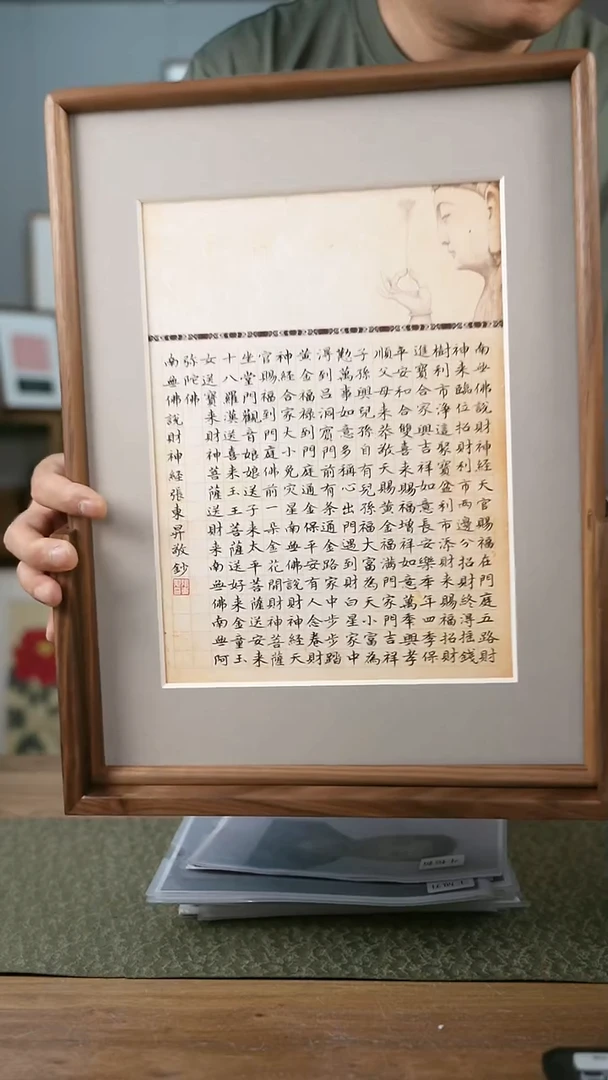 南無佛說財神經天官賜福在門庭五路財
神來臨位招財利市兩邊分招財終淂推錢
樹利市淨這聚寶盆利市添財來賜福招財
進寶合家興吉祥如意長安樂季年四季保
平安和合雙喜來賜福增祥如意萬季興孝
順父母來恭敬天賜黃金福滿門家門吉祥
子孫興兒孫自有兒孫福大富為天小富為
勤萬事如意多稱心出門遇到財白星家中
淂到呂洞賓門前有条金路財中步步踏
黃金福祿到門庭通金保平安家人念財
神經合家大小免灾星南無佛說財神經天
官賜福到門庭佛前一朵金花開財神菩薩
坐堂門觀音娘娘送子來太平菩薩送安來
十八羅漢送喜來玉王菩薩送好來金童玉
女送寶來財神菩薩送財來南無佛南無阿
彌陀佛
南無佛說財神經張東昇敬鈔